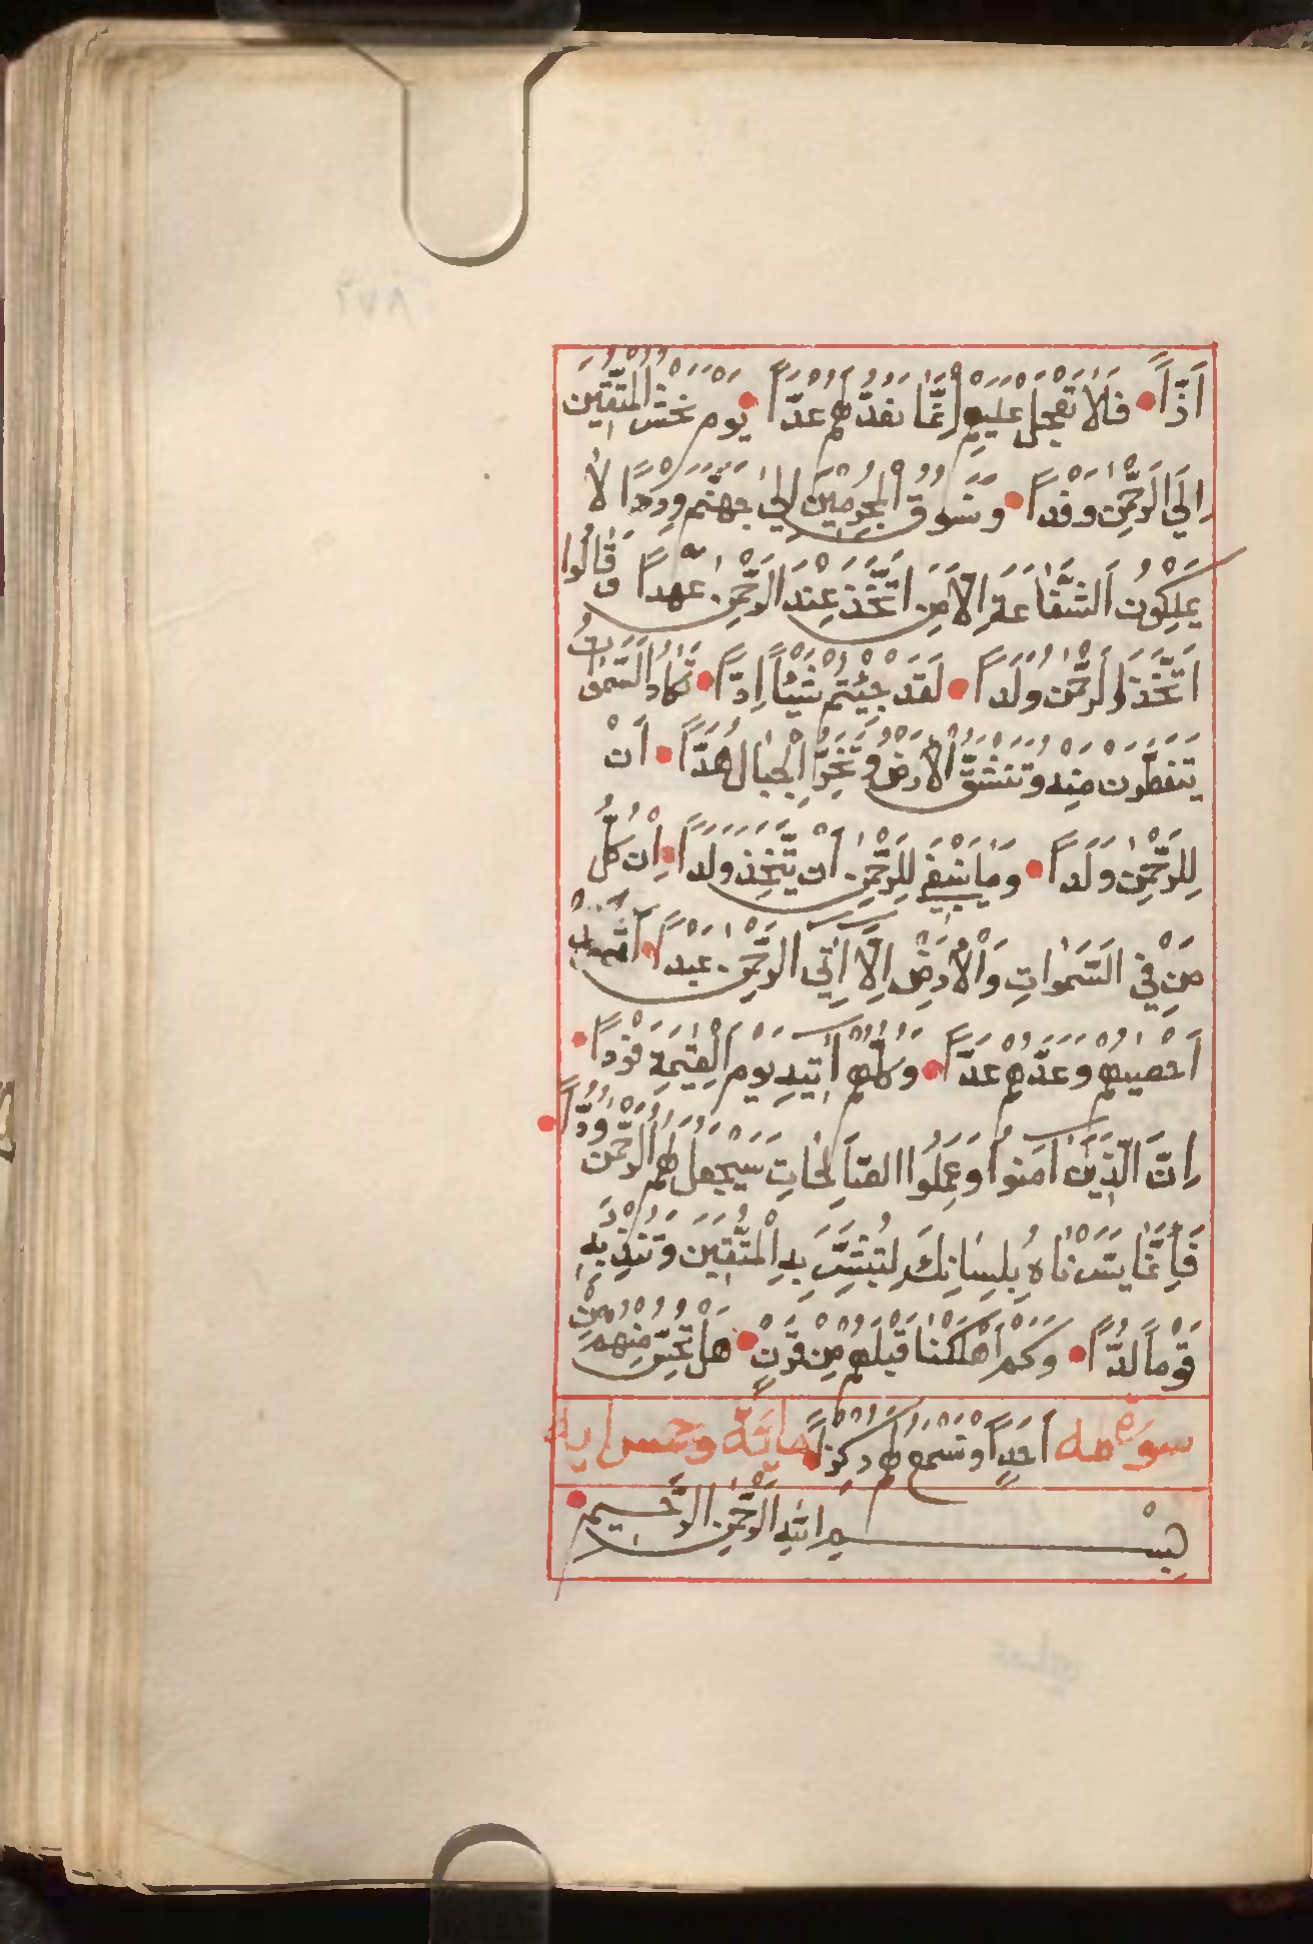 اَزّاً فَلَا تَعْجَلْ عَلَيْهِمْ اِنَّمَا نَعُدُّ لَهُمْ عَدّاً يَوْمَ نَحْشُرُ الْمُتَّقِينَ
اِلَي الرَّحْمٰنِ وَفْداً وَنَسُوقُ الْمُجْرِمِينَ اِلىٰ جَهَنَّمَ وِرْداً لَا
يَمْلِكُونَ الشَّفَاعَةَ اِلَّا مَنِ اتَّخَذَ عِنْدَ الرَّحْمٰنِ عَهْداً وَقَالُوا
اتَّخَذَ الرَّحْمٰنُ وَلَداً لَقَدْ جِئْتُمْ شَيْئاً اِدّاً تَكَادُ السَّمٰوَاتُ
يَتَفَطَّرْنَ مِنْهُ وَتَنْشَقُّ الْاَرْضُ وَتَخِرُّ الْجِبَالُ هَدّاً اَنْ
لِلرَّحْمٰنِ وَلَداً وَمَا يَنْبَغِي لِلرَّحْمٰنِ اَنْ يَتَّخِذَ وَلَداً اِنْ كُلُّ
مَنْ فِي السَّمٰوَاتِ وَالْاَرْضِ اِلَّا اٰتِي الرَّحْمٰنِ عَبْداً
اَحْصٰيهُمْ وَعَدَّهُمْ عَدّاً وَكُلُّهُمْ اٰتِيهِ يَوْمَ الْقِيٰمَةِ فَرْداً
اِنَّ الَّذِينَ اٰمَنُوا وَعَمِلُوا الصَّالِحَاتِ سَيَجْعَلُ لَهُمُ الرَّحْمٰنُ وُدّاً
فَاِنَّمَا يَسَّرْنَاهُ بِلِسَانِكَ لِتُبَشِّرَ بِهِ الْمُتَّقِينَ وَتُنْذِرَ بِهِ
قَوْماً لُدّاً وَكَمْ اَهْلَكْنَا قَبْلَهُمْ مِنْ قَرْنٍ هَلْ تُحِسُّ مِنْهُمْ مِنْ
سورة طه اَحَدٍ اَوْ تَسْمَعُ لَهُمْ رِكْزاً مايَة وخمس ايه
بِسْمِ اللّٰهِ الرَّحْمٰنِ الرَّحِيمِ